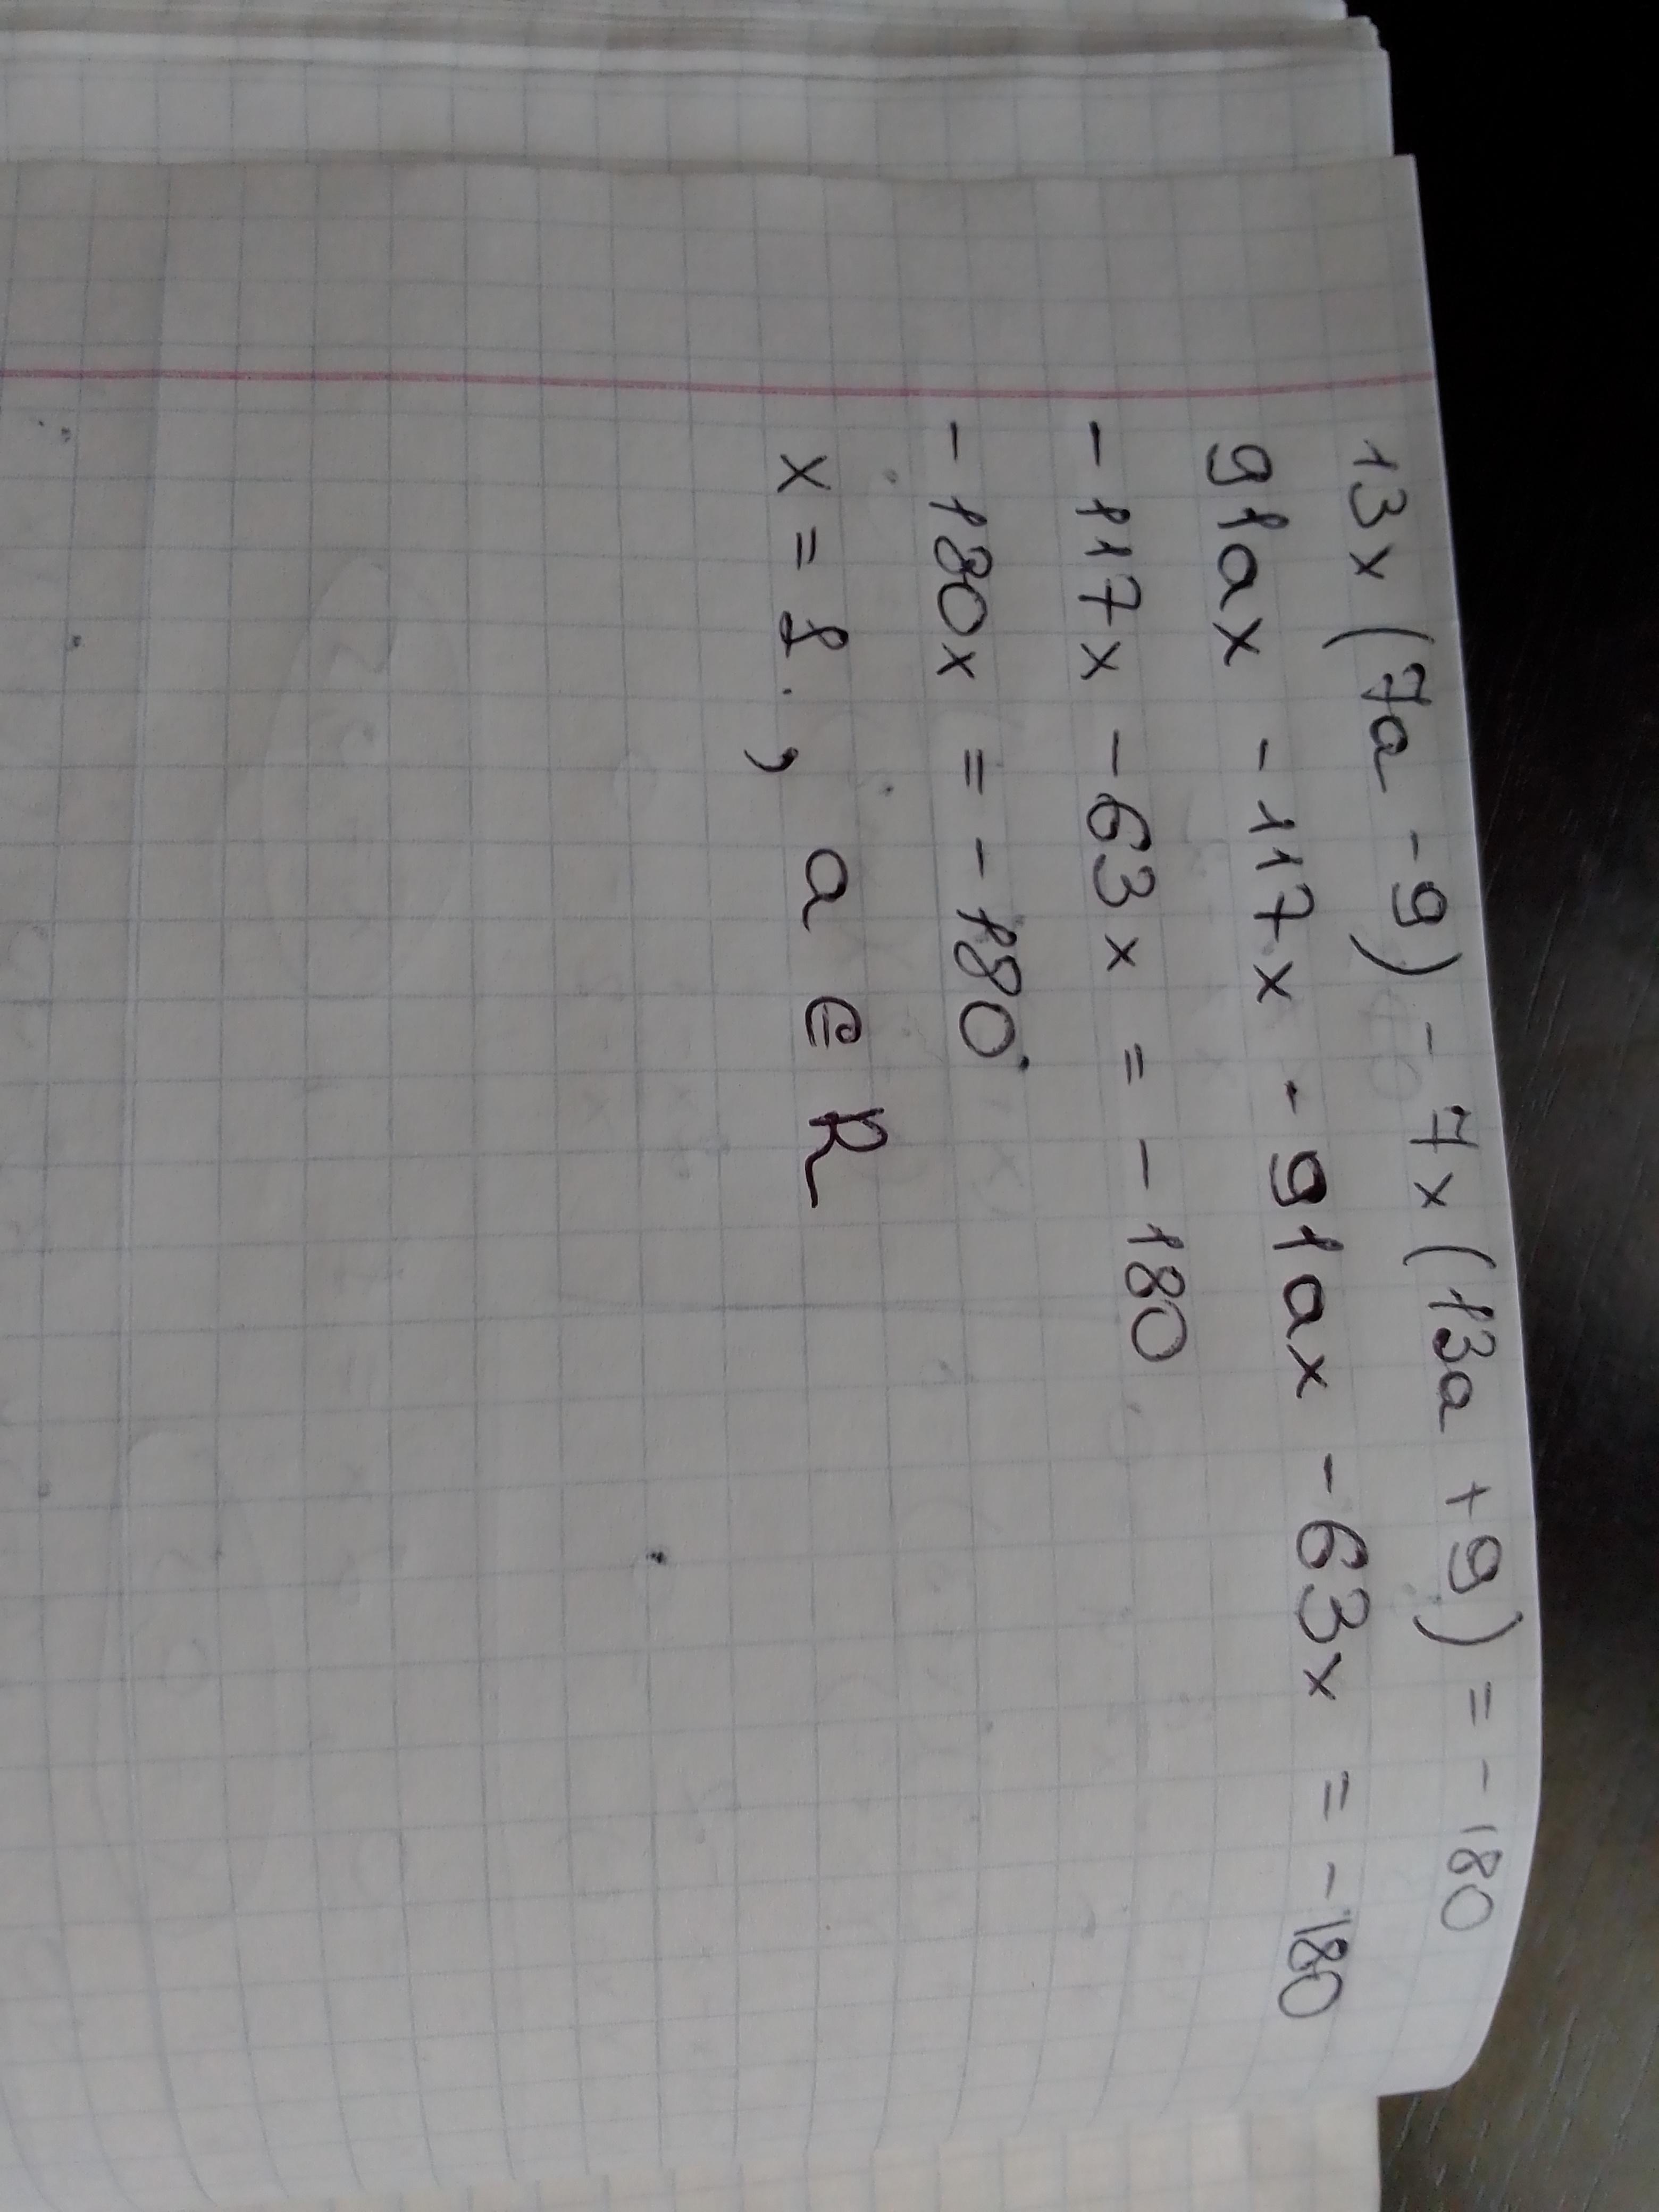 13x (7a - 9) - 7x (13a + 9) = - 180
91ax - 117x - 91ax - 63x = - 180
- 117x - 63x = - 180
- 180x = - 180
x = 1 , a ∈ R